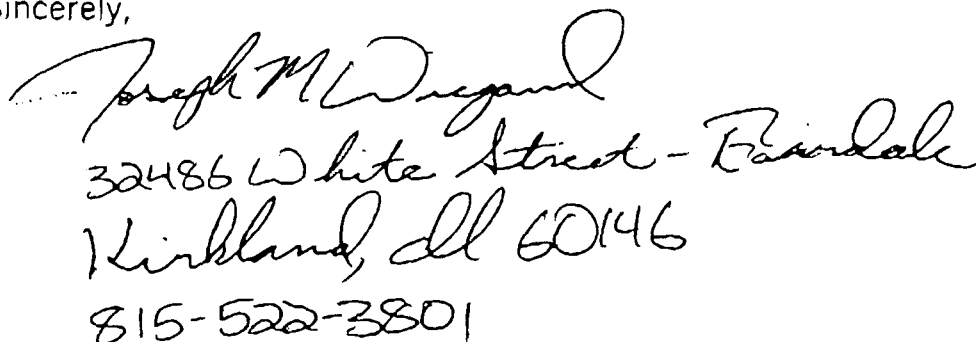 Sincerely,
Joseph M Wiegand
32486 White Street - Fairdale
Kirkland, Ill 60146
815-522-3801